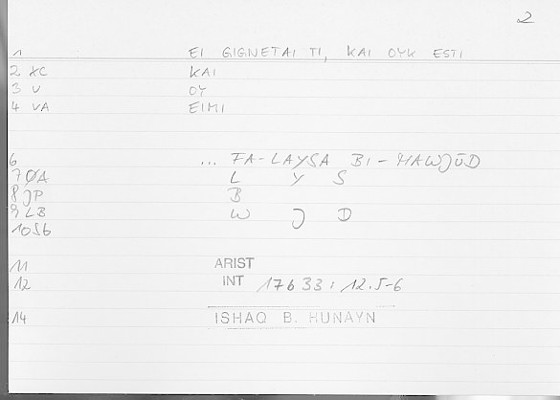 2
1 EI GIGNETAI TI, KAI OYK ESTI
2 XC KAI
3 V OY
4 VA EIMI
6 ... FA-LAYSA BI-MAWJŪD
7 ØA L Y S
8 JP B
9 LB W J D
10 SG
11 ARIST
12 INT 17633: 12.5-6
14 ISHAQ B. HUNAYN